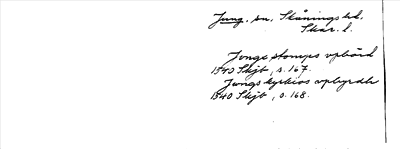 Jung, sn, Skånings hd,
Skar. l.
Jungs stomps upbörd
1540 Skjb, s. 167.
Jungs kyrkios upbyrdh
1540 Skjb, s. 168.